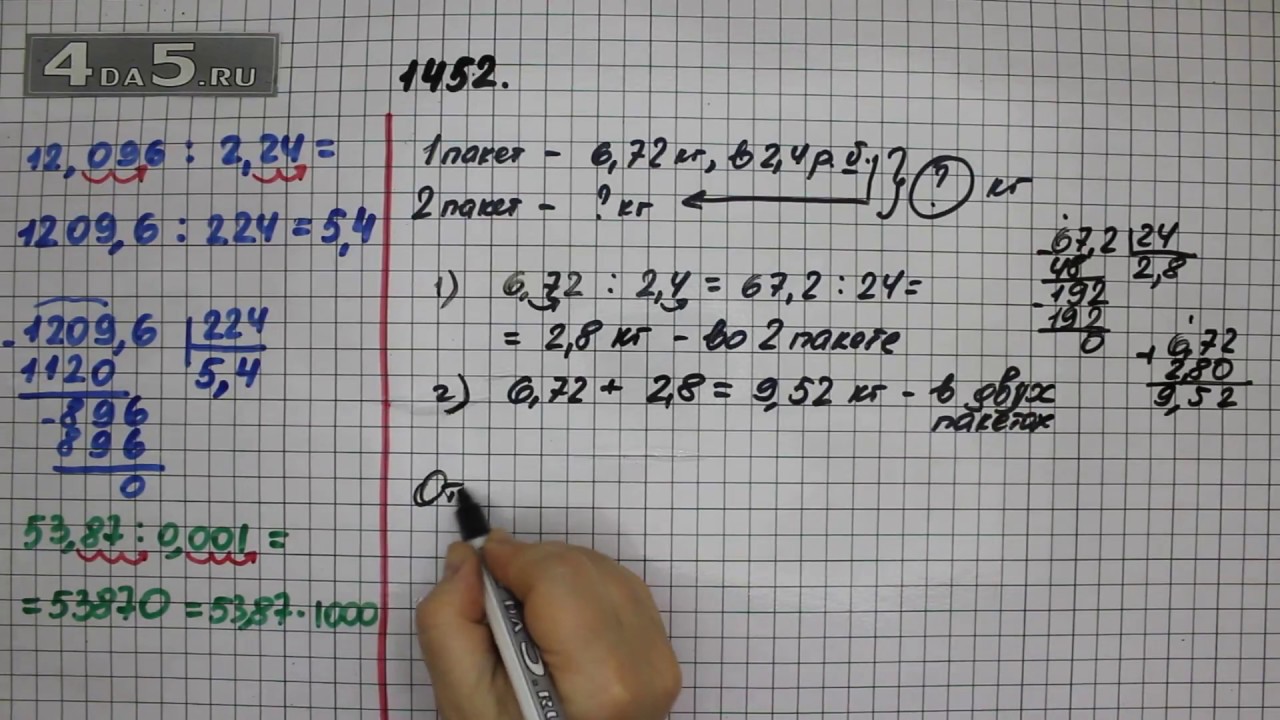 4DA5.RU
12,096 : 2,24 =
1209,6 : 224 = 5,4
- 1209,6 | 224
1120 5,4
- 896
896
0
53,87 : 0,001 =
= 53870 = 53,87 · 1000
1452.
1 пакет - 6,72 кг, в 2,4 р. б. } ? кг
2 пакет - ? кг
1) 6,72 : 2,4 = 67,2 : 24 =
= 2,8 кг - во 2 пакете
2) 6,72 + 2,8 = 9,52 кг - в двух
пакетах
- 67,2 | 24
48 2,8
- 192
192
0
+ 6,72
2,80
9,52
От
DA5.RU